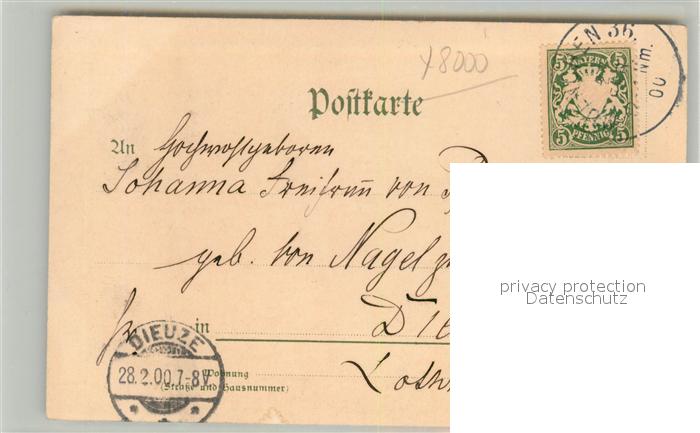 EN 36.
Nm.
00
5 BAYERN 5
5 PFENNIG 5
x8000
Postkarte
An Hochwohlgeboren
Johanna Freifrau von
geb. von Nagel
in
DIEUZE
28.2.00.7-8V.
Wohnung
(Straße und Hausnummer)
Loth
privacy protection
Datenschutz